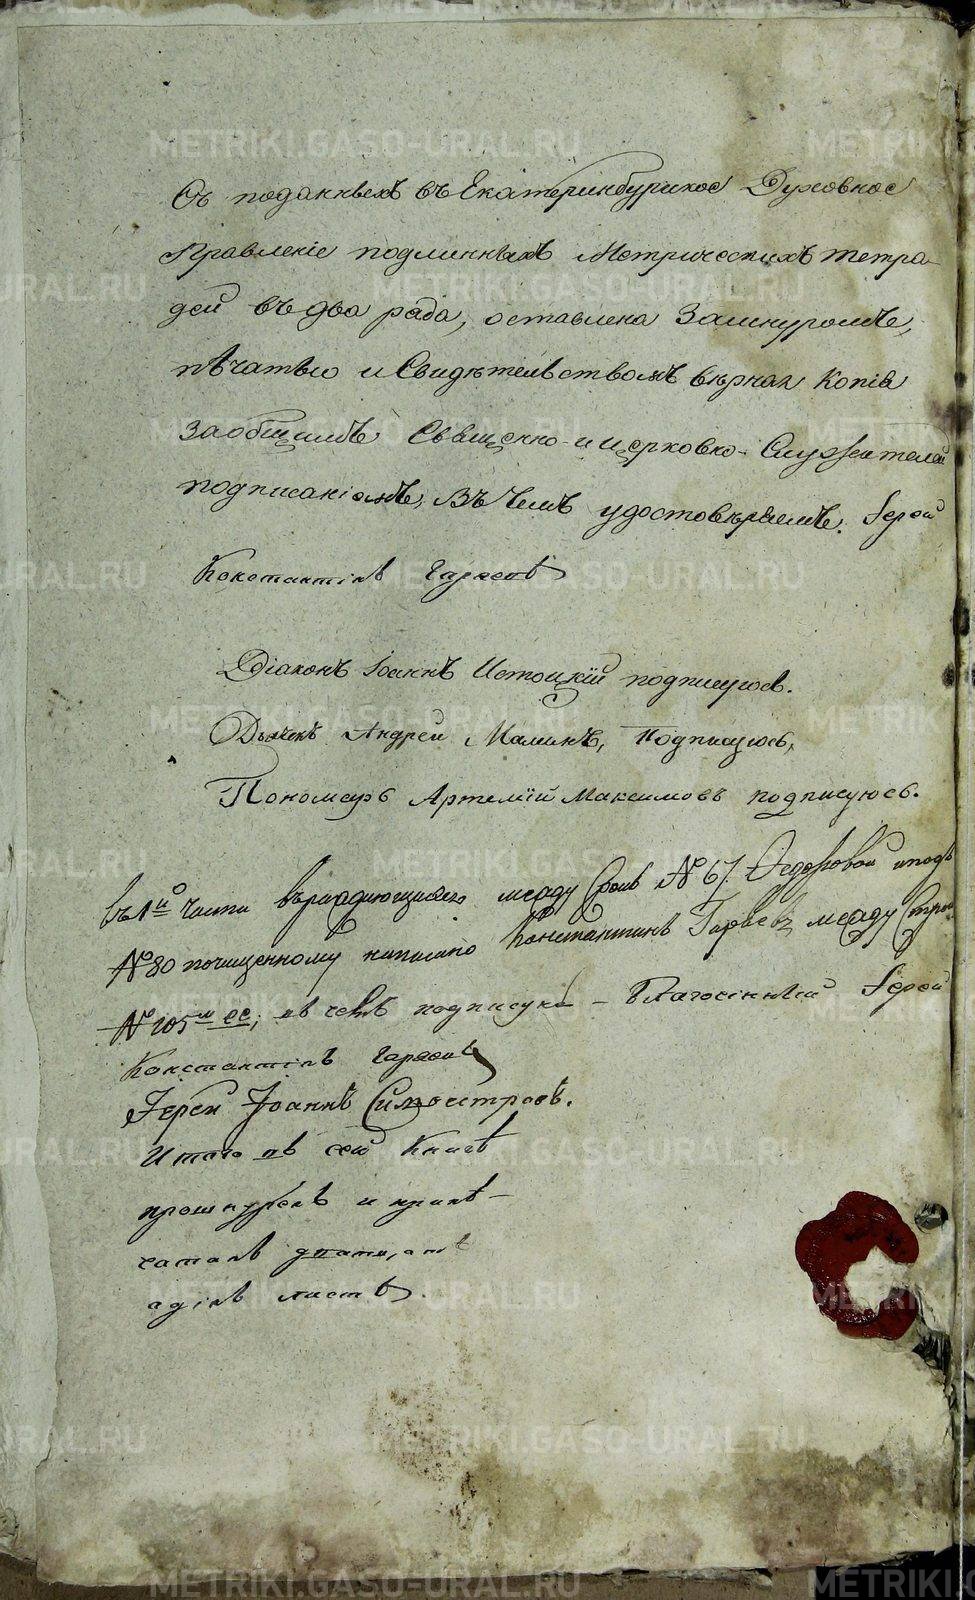 Съ поданныхъ въ Екатеринбургское Духовное
Правленіе подлинныхъ Метрическихъ тетра-
дей въ два ряда, оставлена За шнуромъ,
пѣчатью и Свидѣтельствомъ вѣрная Копія
За общимъ Священно- и церковно- Служителей
подписаніемъ, Въ чемъ удостовѣряемъ. Іерей
Константінъ
Діаконъ Іоаннъ Истоцкій подписуюсь.
Дьячекъ Андрей Маминъ, Подписуюсь,
Пономарь Артемій Максимовъ подписуюсь.
въ 1й части между Строкъ № 67. Федоровой и подъ
№ 80 почищенному написано Константинъ между Строк
№ 105м въ чемъ подписуюсь – Благочинный Іерей
Константінъ
Іерей Іоаннъ Сильвестровъ.
Итого въ сей Книгѣ
прошнурованныхъ и припѣ-
чатанъ
одінъ листъ.
METRIKI.GASO-URAL.RU